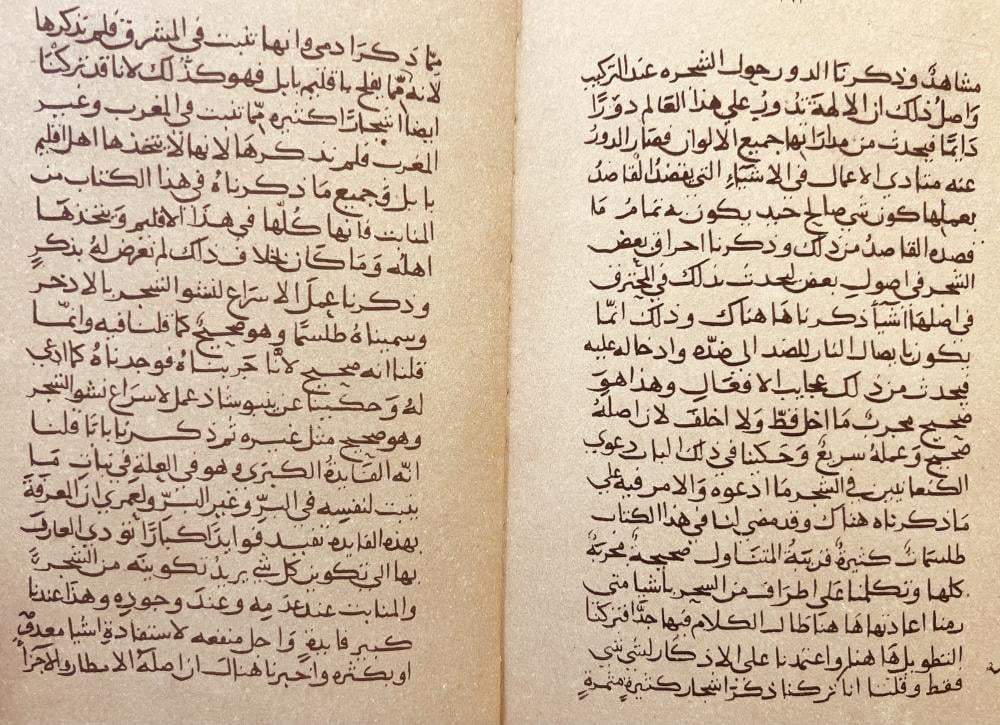 مشاهد وذكرنا الدور حول الشجره عند التركيب
واصل ذلك ان الالهة تدور علي هذا العالم دورًا
دايمًا فيحدث من مداراتها جميع الالوان فصار الدور
عنه متنادي الاعمال في الاشياء التي يقصد القاصد
بعملها كون شي صالح جيد يكون به تمام ما
قصده القاصد من ذلك وذكرنا احراق بعض
الشجر في اصول بعض ليحدث بذلك في المحترق
في اصلها اشيأ ذكرناها هناك وذلك انما
يكون بايصال النار للضد الي ضده وادخاله عليه
فيحدث من ذلك عجايب الافعال وهذا هو
صحيح مجرب ما اخل قط ولا اخلف لان اصله
صحيح وعمله سريع وحكينا في ذلك الباب دعوي
الكنعانيين في الشجر ما ادعوه والامر فيه علي
ما ذكرناه هناك وقد مضي لنا في هذا الكتاب
طلسمات كثيرة قريبة المتناول صحيحة مجربة
كلها وتكلمنا علي اطراف من السحر باشيا متي
رمنا اعادتها هاهنا طال الكلام فيها جدًا فتركنا
التطويل هاهنا واعتمدنا علي الاذكار لشي شي
فقط وقلنا انا تركنا ذكر اشجار كثيرة مثمرة
مما ذكر ادمي وانها تنبت في المشرق فلم نذكرها
لانه مما يفلح باقليم بابل فهو كذلك لانا قد تركنا
ايضا اشجارًا كثيره مما تنبت في المغرب وغير
المغرب فلم نذكرها لانها لا يتخذها اهل اقليم
بابل وجميع ما ذكرناه في هذا الكتاب من
المنابت فانها كلها في هذا الاقليم ويتخذها
اهله وما كان بخلاف ذلك لم نعرض له بذكرٍ
وذكرنا عمل الاسراع لنشو الشجر بالادخر
وسميناه طلسمًا وهو صحيح كما قلنا فيه وانما
قلنا انه صحيح لانا جربناه فوجدناه كما ادعي
له وحكينا عن ينبوشاد عمل لاسراع نشو الشجر
وهو صحيح مثل غيره ثم ذكرنا بابًا قلنا
انه الفايدة الكبري وهو في العلة في نبات ما
ينبت لنفسه في البر وغير البر ولعمري ان المعرفة
بهذه الفايده تفيد فوايد اكبارًا تودي العارف
بها الي تكوين كل شي يريد تكوينه من الشجر
والمنابت عند عدمه وعند وجوده وهذا عندنا
كبير فايدةٍ واجل منفعه لاستفادة اشيا معدومةٍ
او يكثره واخبرنا هنالك ان اصله الامطار والاجزأ